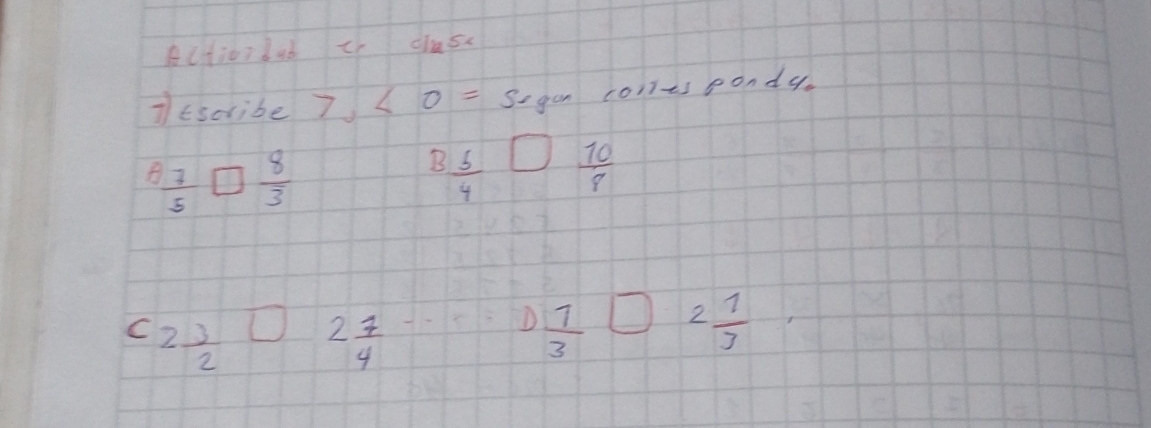 Actividad en clase
1) Escribe >, < o = segun corresponda.
A 7/5 □ 8/3 B 5/4 □ 10/8
C 2 3/2 □ 2 7/4 D 7/3 □ 2 1/3